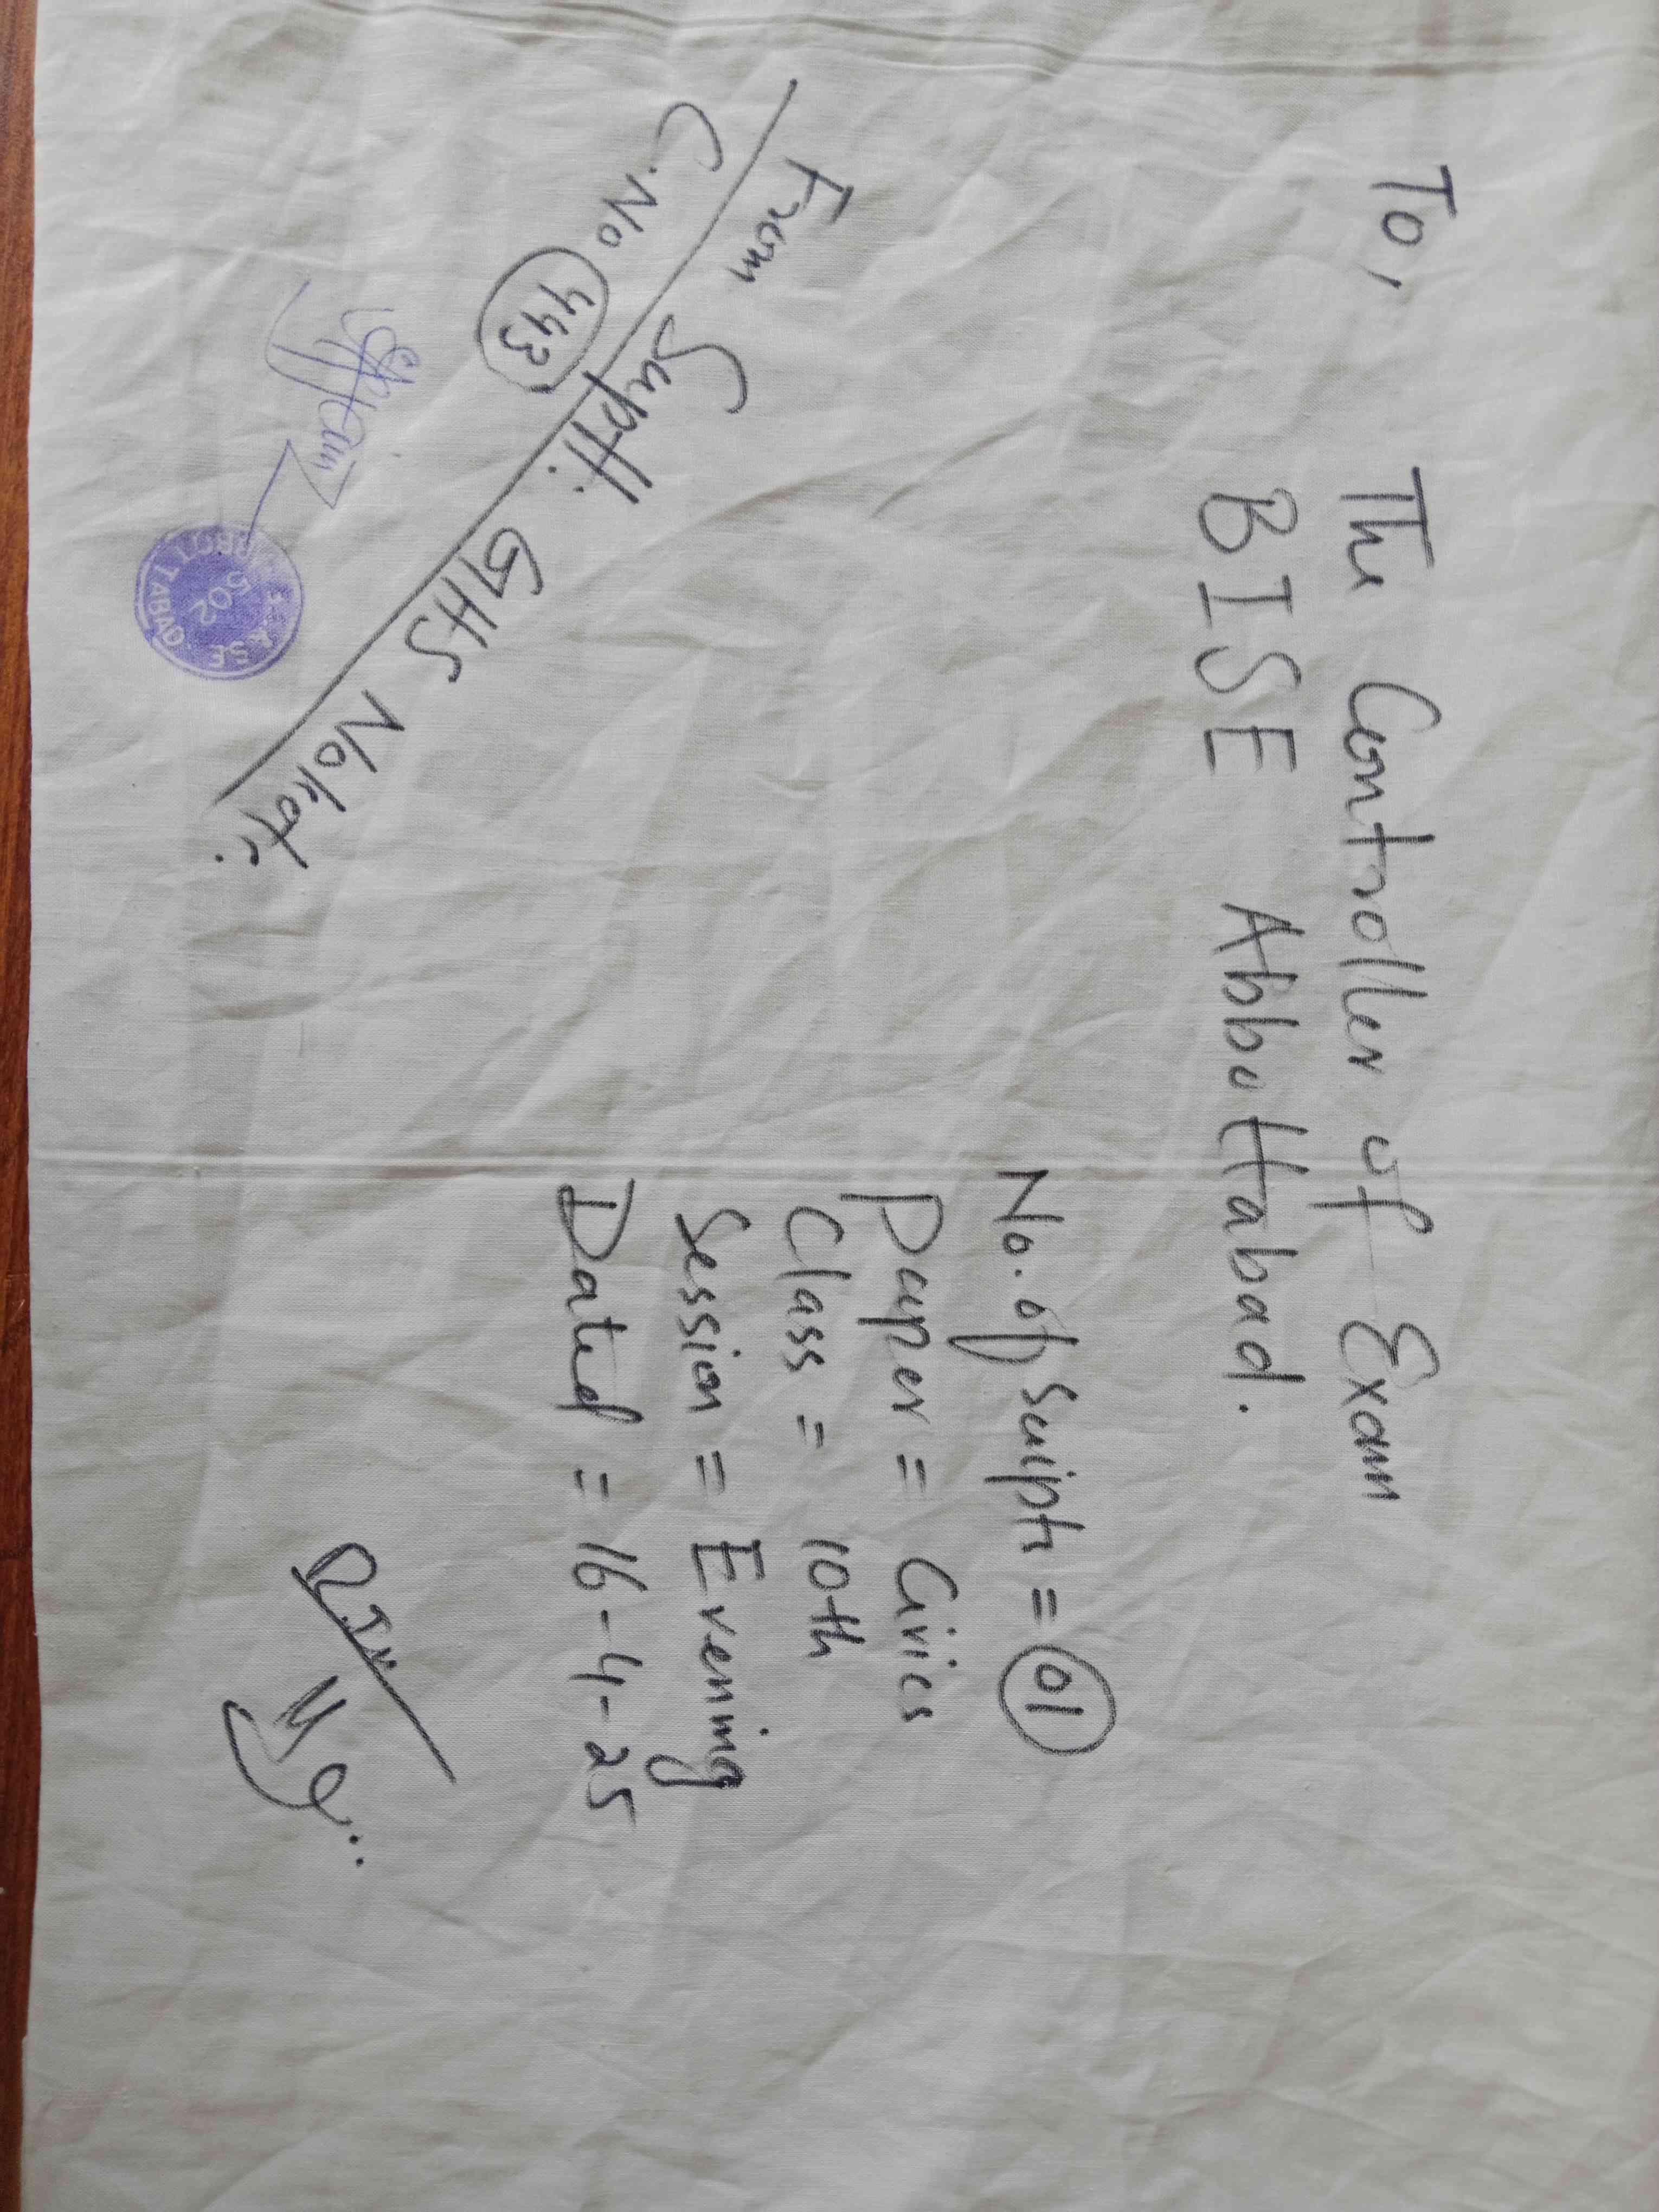 To,
The Controller of Exam
BISE Abbottabad.
No. of Script = 01
Paper = Civics
Class = 10th
Session = Evening
Dated = 16-4-25
From
Suptt. GHS Nokot.
C.No 443
502
ABBOTTABAD